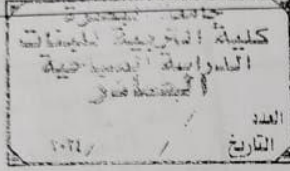 جامعة البصرة
كلية التربية للبنات
الدراسة الصباحية
العدد
التاريخ / / ٢٠٢٤